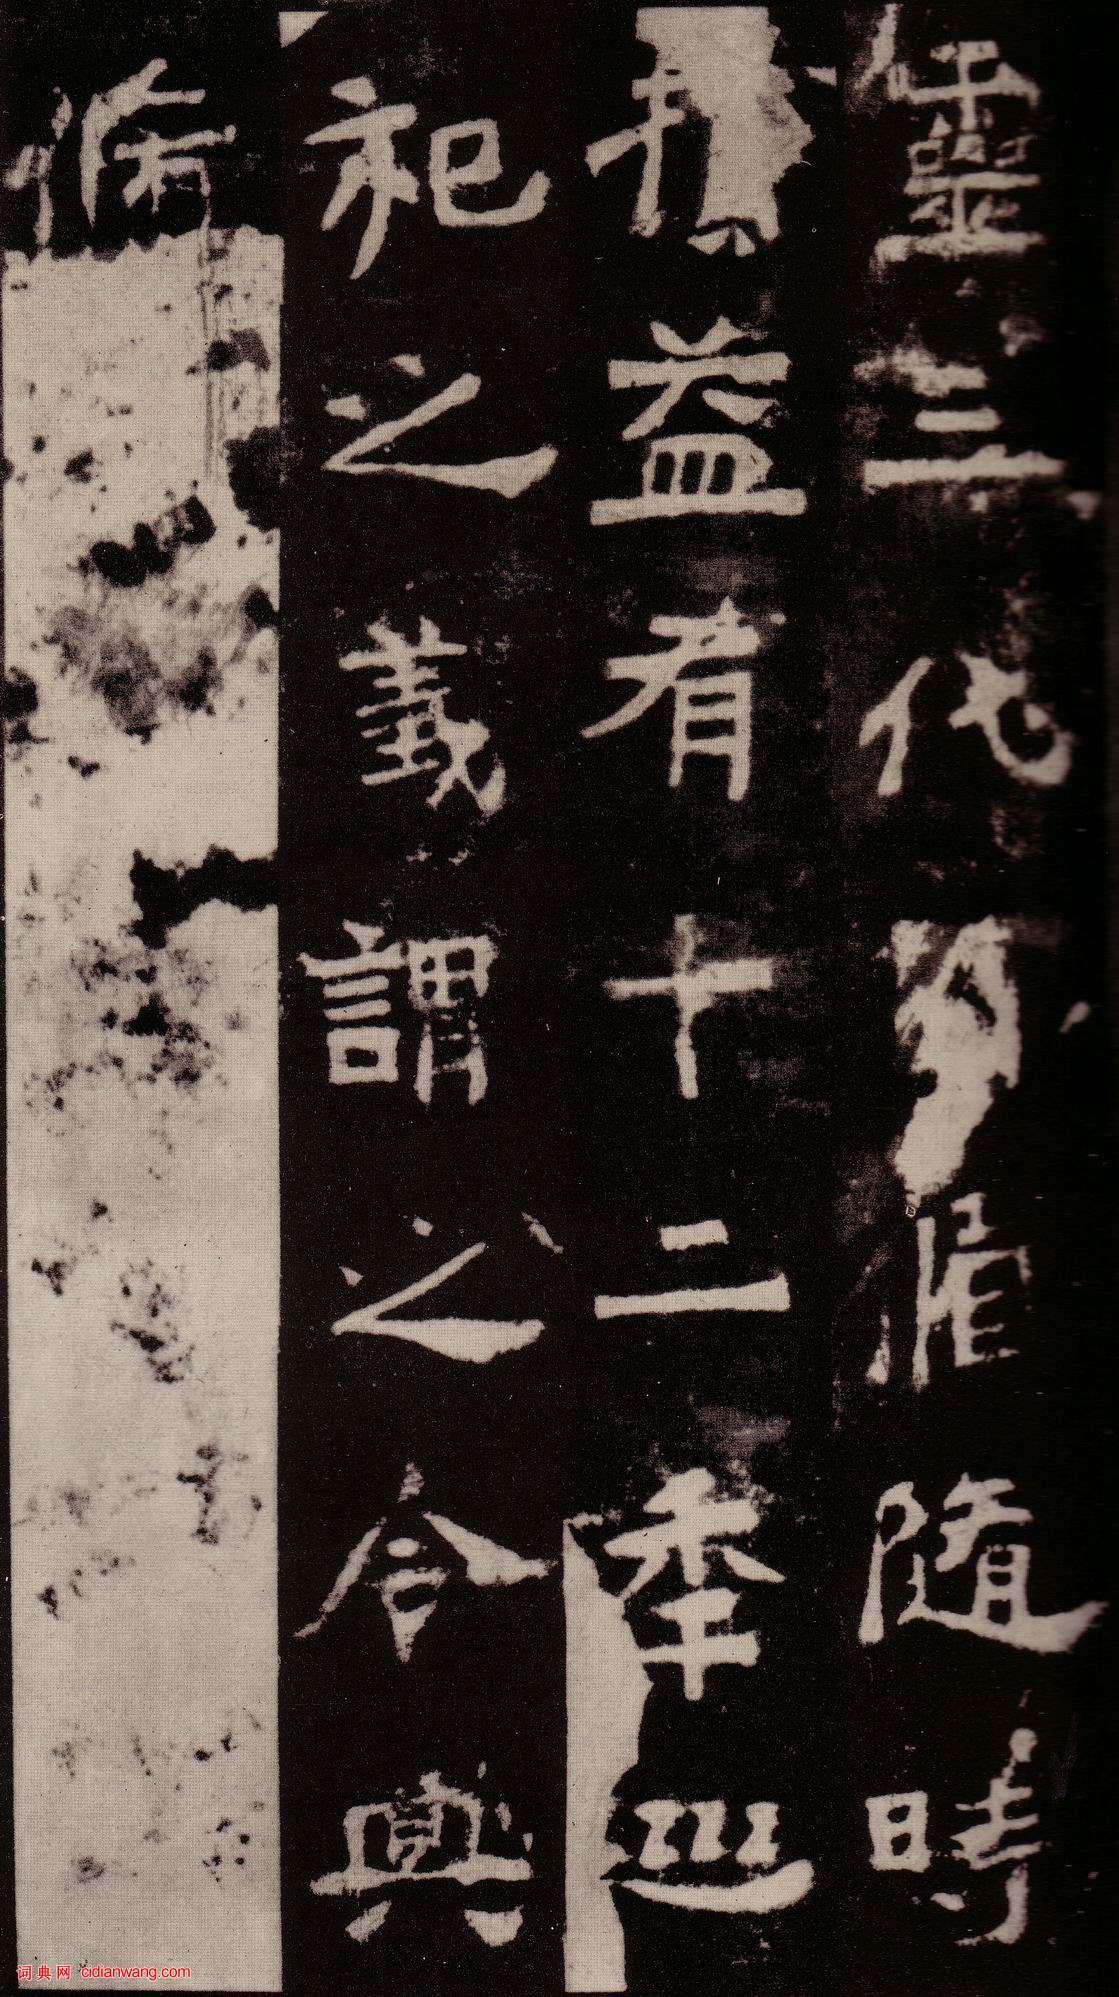 靈三代隨時
益有十二秊巡
祀之義謂之令典
脩
词典网 cidianwang.com